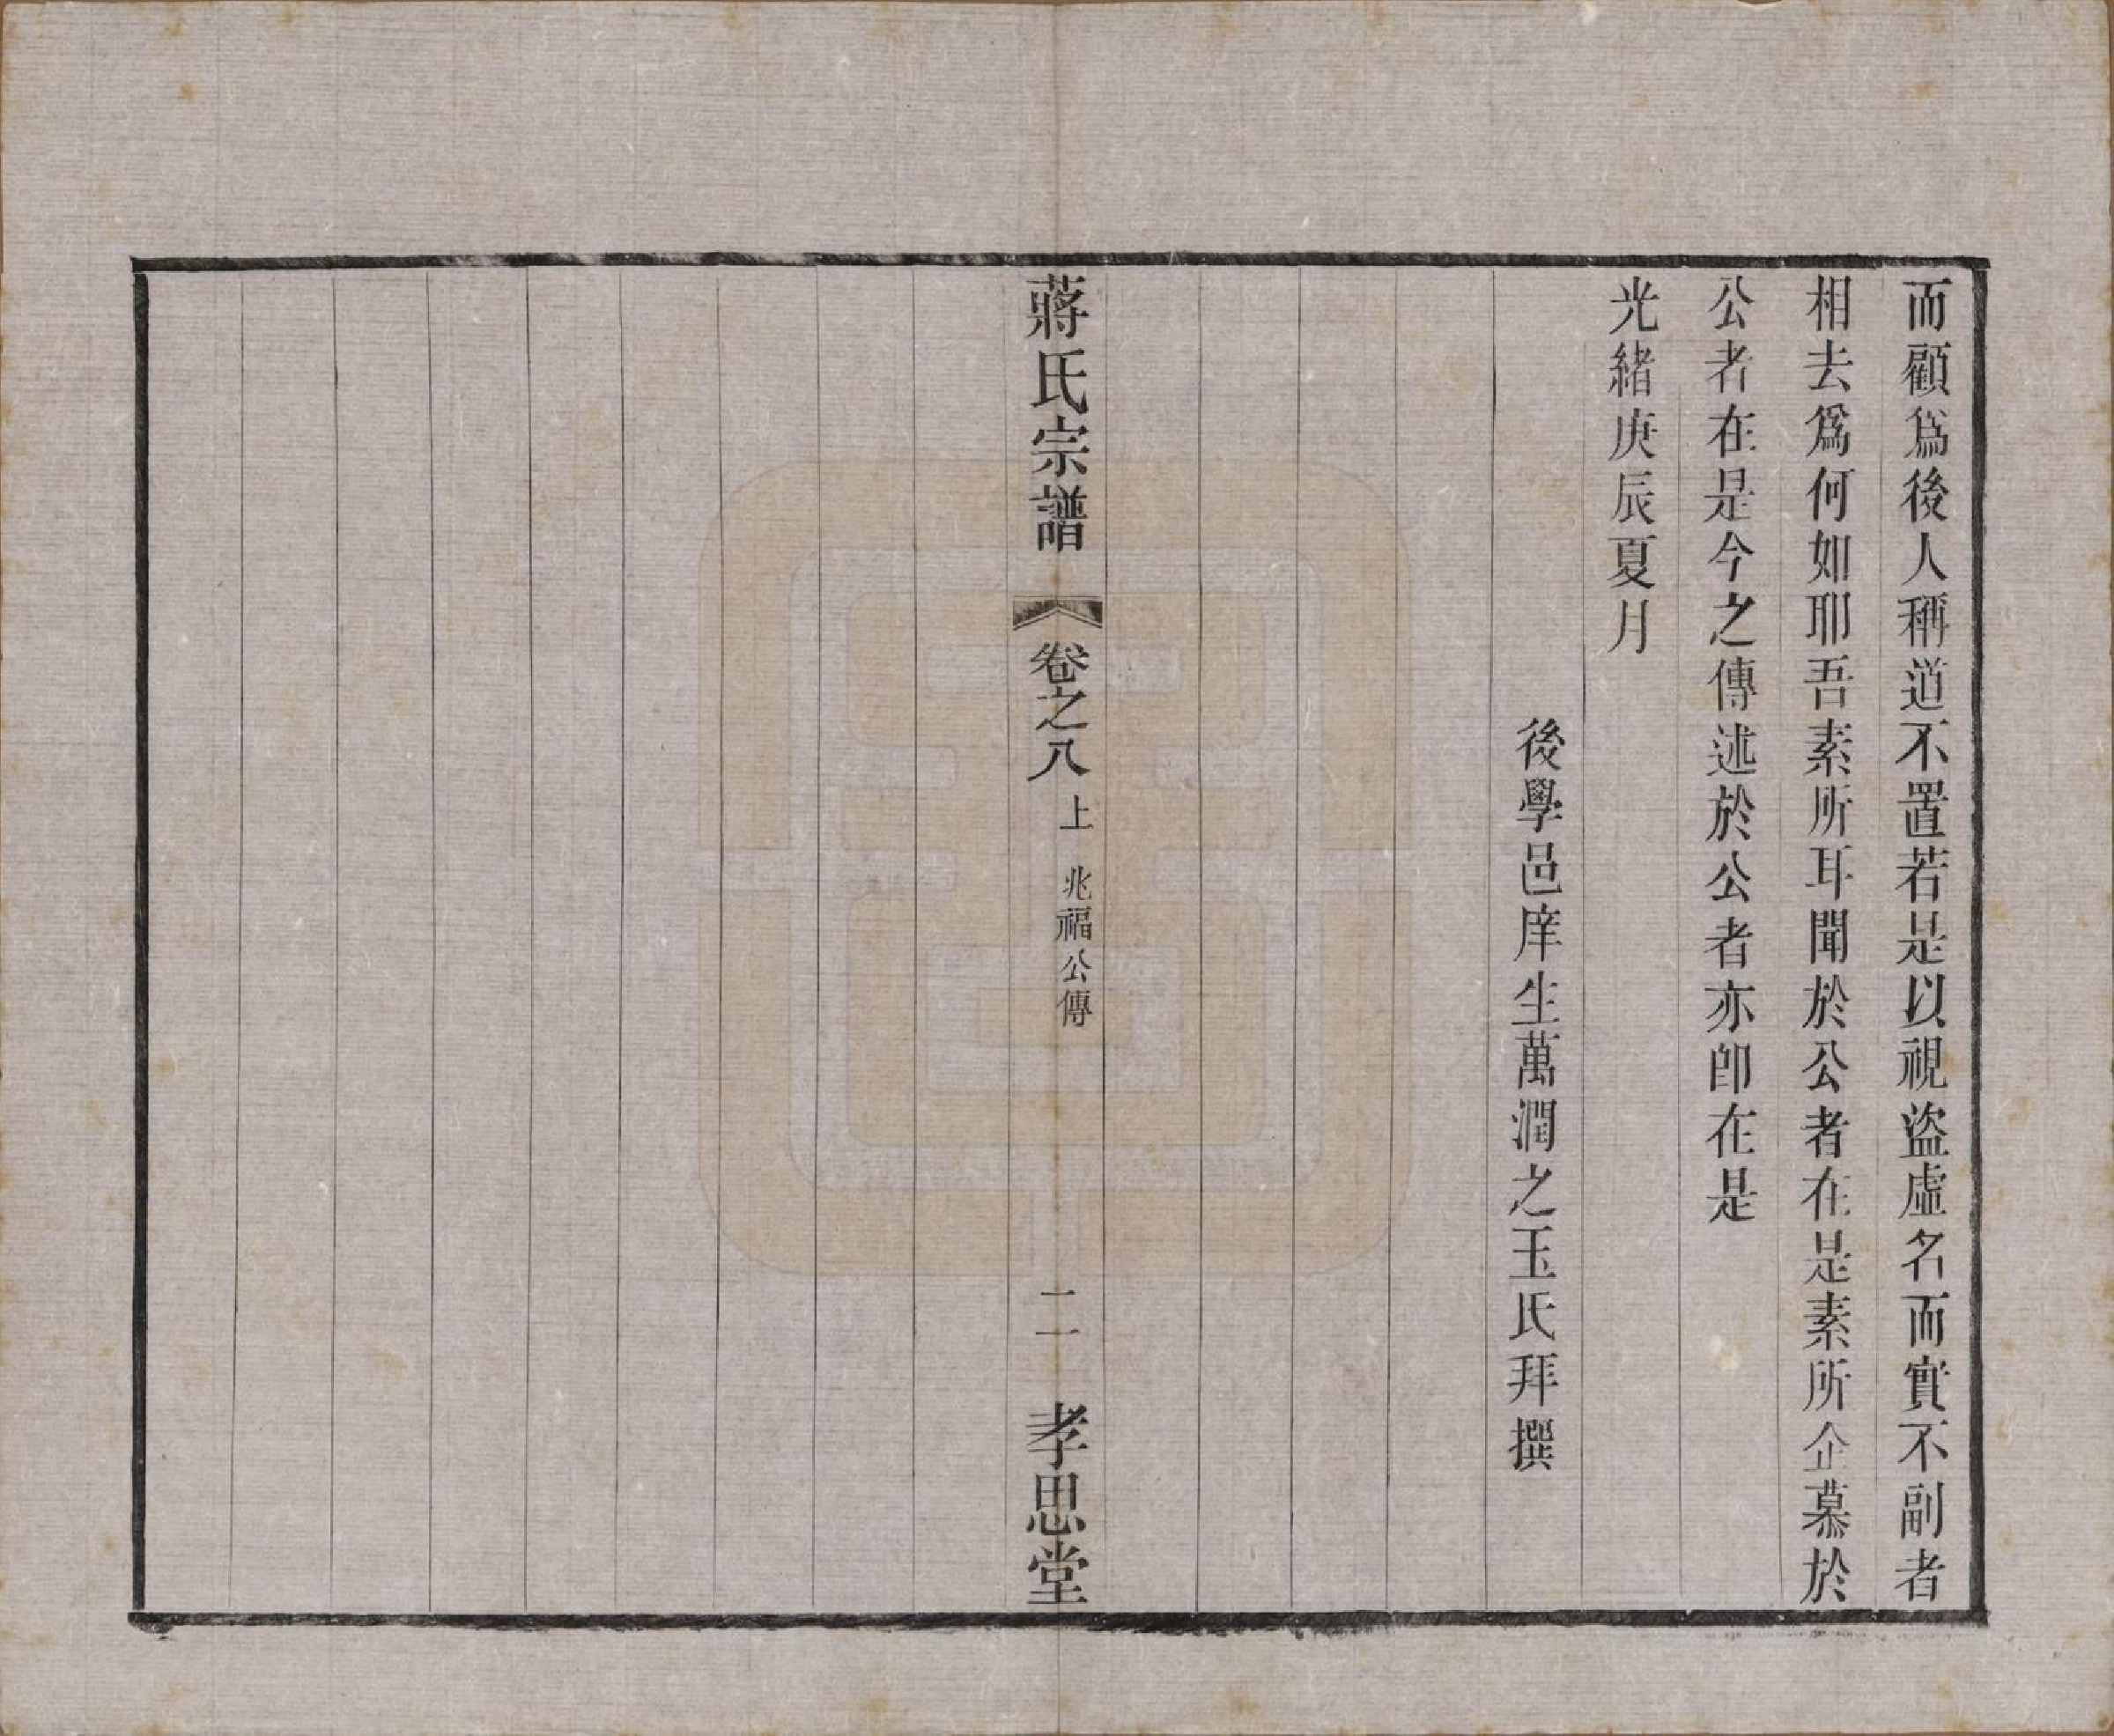 而顧爲後人稱道不置若是以視盜虛名而實不副者
相去爲何如耶吾素所耳聞於公者在是素所企慕於
公者在是今之傳述於公者亦卽在是
光緒庚辰夏月
後學邑庠生萬潤之玉氏拜撰
蔣氏宗譜
卷之八
上
兆福公傳
二
孝思堂